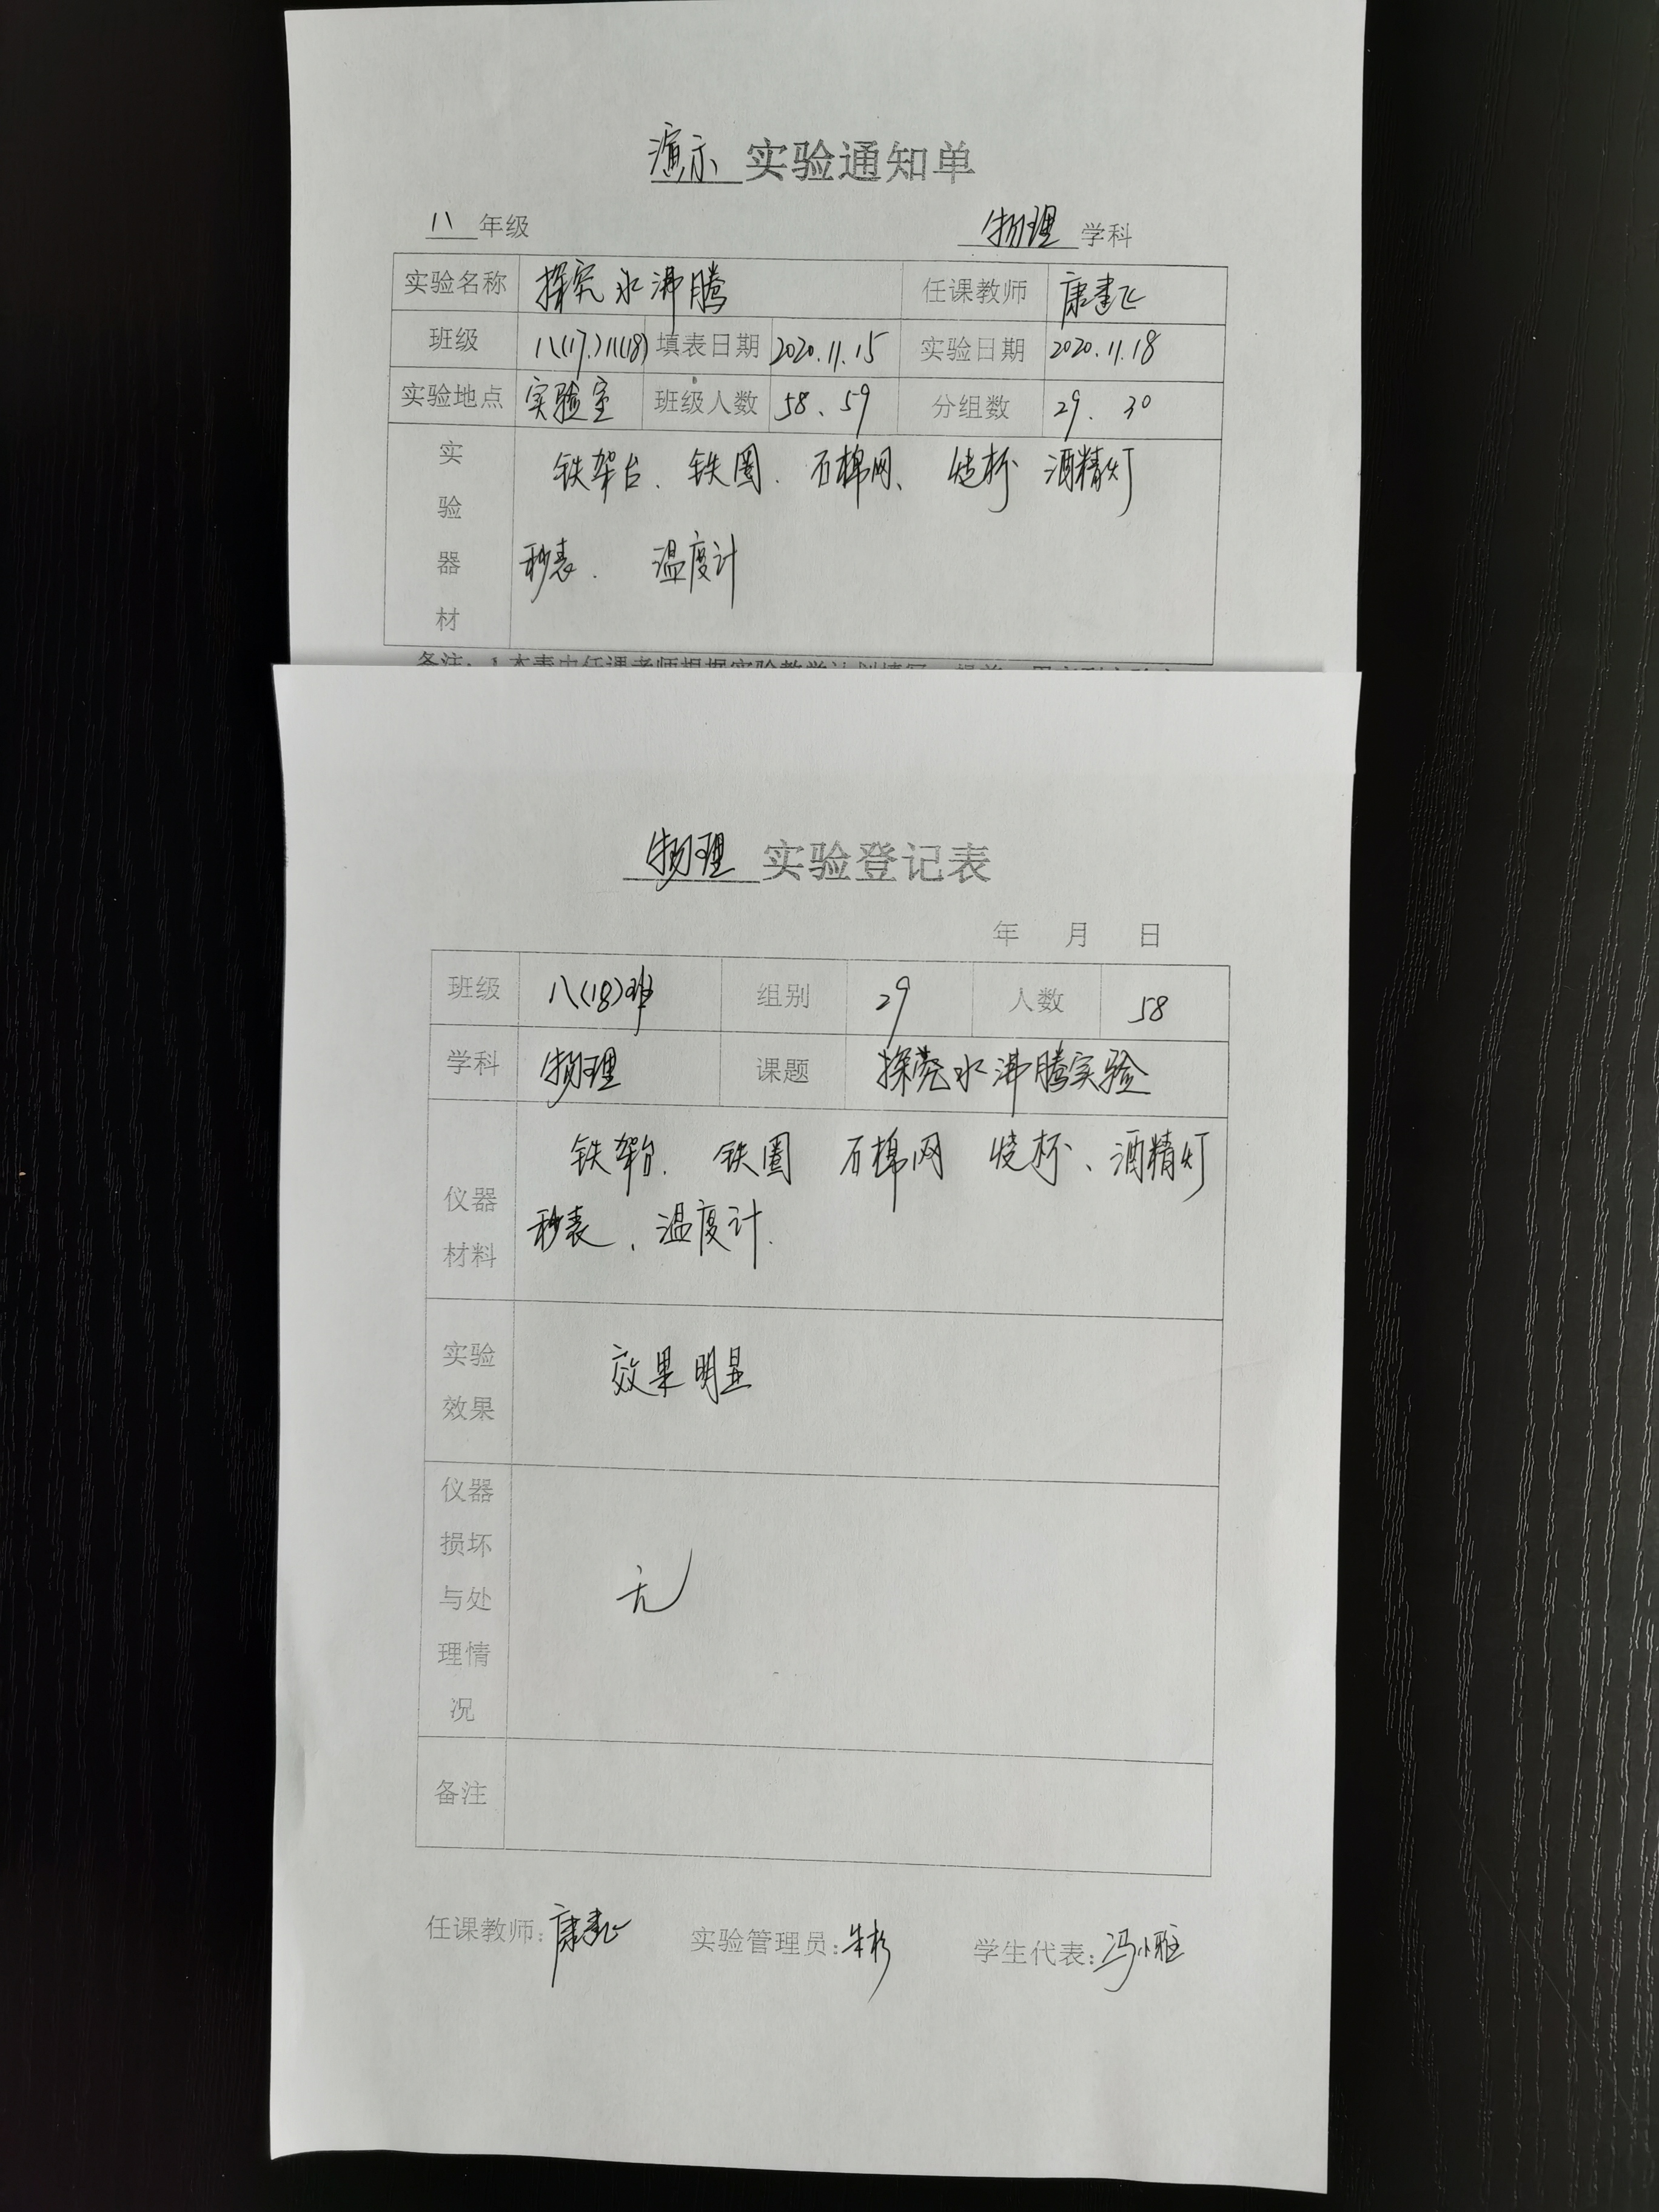 演示 实验通知单
八 年级 物理 学科
实验名称 探究水沸腾 任课教师 康建飞
班级 八(17)八(18) 填表日期 2020.11.15 实验日期 2020.11.18
实验地点 实验室 班级人数 58、59 分组数 29、30
实验器材 铁架台、铁圈、石棉网、烧杯 酒精灯
秒表、 温度计
物理 实验登记表
年 月 日
班级 八(18)班 组别 29 人数 58
学科 物理 课题 探究水沸腾实验
仪器材料 铁架台、 铁圈 石棉网 烧杯、酒精灯
秒表、温度计.
实验效果 效果明显
仪器损坏与处理情况 无
备注
任课教师:康建飞 实验管理员:朱彬 学生代表:冯小雅